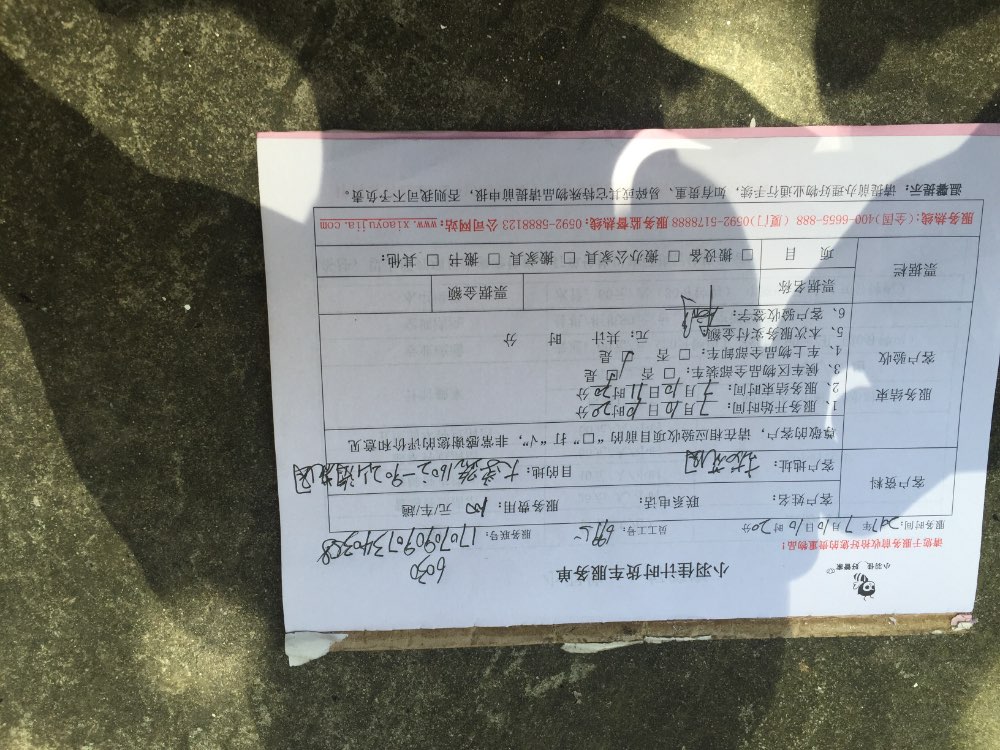 小羽佳 好管家
小羽佳计时货车服务单
请您于服务前收拾好您的贵重物品!
6030
服务时间: 2017年 7月10日10时20分 员工工号: 6915 服务联号: 17070907340308
客户资料
客户姓名: 联系电话: 服务费用: 100 元/车/趟
客户地址: 目的地: 大学路160之一902
尊敬的客户,请在相应验收项目前的“□”打“√”,非常感谢您的评价和意见
服务结束
客户验收
1、服务开始时间: 7月10日10时20分
2、服务结束时间: 7月10日11时20分
3、候车区物品全部装车: □ 否 是
4、车上物品全部卸车: □ 否 是
5、本次服务实付金额: 元; 共计 时 分
6、客户验收签字:
票据栏
票据名称 票据金额
项 目 □ 搬设备 □ 搬办公家具 □ 搬家具 □ 搬书 □ 其他:
服务热线:(全国)400-6655-888 (厦门)0592-5178888 服务监督热线:0592-5888123 公司网站:www.xiaoyujia.com
温馨提示: 请提前办理好物业通行手续,如有贵重、易碎或其它特殊物品请提前申报,否则我司不予负责。